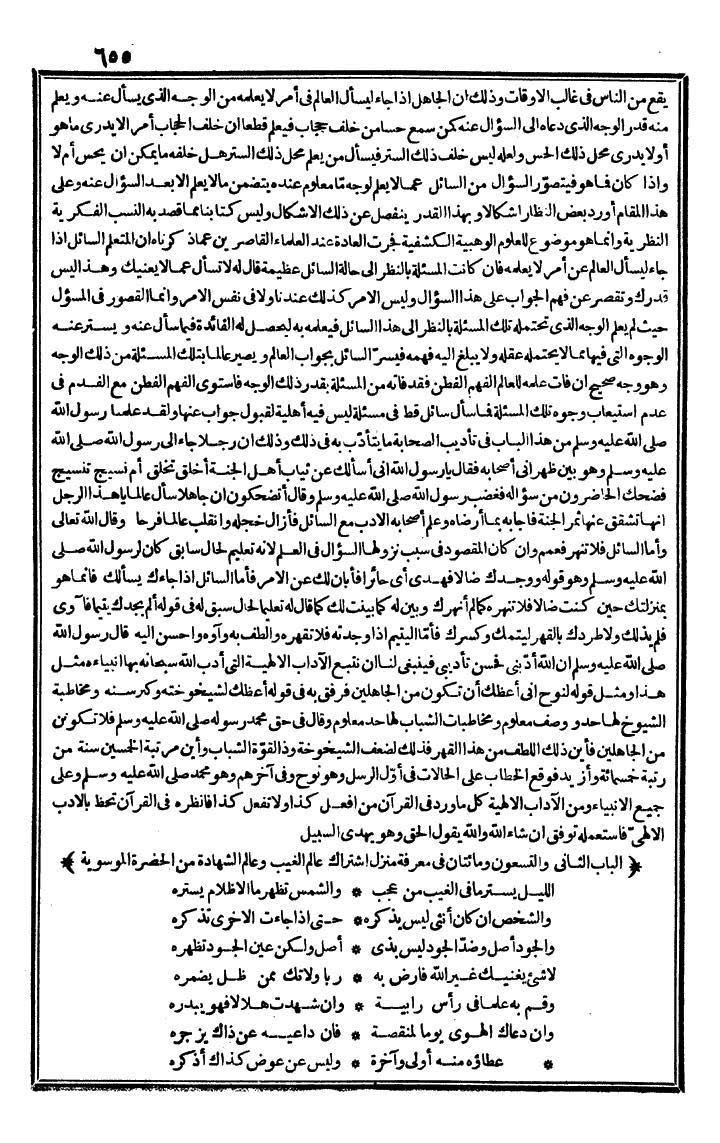 ٦٥٥
يقع من الناس فى غالب الاوقات وذلك ان الجاهل اذا جاء ليسأل العالم فى أمر لا يعلمه من الوجه الذى يسأل عنه ويعلم
منه قدر الوجه الذى دعاه الى السؤال عنه كمن سمع حسا من خلف حجاب فيعلم قطعا ان خلف الحجاب أمر الا يدرى ما هو
أو لا يدرى محل ذلك الحس ولعله ليس خلف ذلك الستر فيسأل من يعلم محل ذلك الستر هل خلفه ما يمكن ان يحس أم لا
واذا كان فما هو فيتصوّر السؤال من السائل عما لا يعلم لوجه تما معلوم عنده يتضمن ما لا يعلم الا بعد السؤال عنه وعلى
هذا المقام أورد بعض النظار اشكالا وبهذا القدر ينفصل عن ذلك الاشكال وليس كتابنا مما قصد به النسب الفكرية
النظرية وانما هو موضوع للعلوم الوهبية الكشفية فجرت العادة عند العلماء القاصرين عما ذكرناه ان المتعلم السائل اذا
جاء ليسأل العالم عن أمر لا يعلمه فان كانت المسئلة بالنظر الى حالة السائل عظيمة قال له لا تسأل عما لا يعنيك وهذا ليس
قدرك وتقصر عن فهم الجواب على هذا السؤال وليس الامر كذلك عندنا ولا فى نفس الامر وانما القصور فى المسؤل
حيث لم يعلم الوجه الذى تحتمله تلك المسئلة بالنظر الى هذا السائل فيعلمه به ليحصل له الفائدة فيما سأل عنه ويستر عنه
الوجوه التى فيها مما لا يحتمله عقله ولا يبلغ اليه فهمه فيسرّ السائل بجواب العالم ويصير عالما بتلك المسئلة من ذلك الوجه
وهو وجه صحيح ان فات علمه للعالم الفهم الفطن فقد فاته من المسئلة بقدر ذلك الوجه فاستوى الفهم الفطن مع الفدم فى
عدم استيعاب وجوه تلك المسئلة فما سأل سائل قط فى مسئلة ليس فيه أهلية لقبول جواب عنها ولقد علمنا رسول الله
صلى الله عليه وسلم من هذا الباب فى تأديب الصحابة ما يتأدّب به فى ذلك وذلك ان رجلا جاء الى رسول الله صلى الله
عليه وسلم وهو بين ظهرانى أصحابه فقال يا رسول الله انى أسألك عن ثياب أهل الجنة أخلق تخلق أم نسيج تنسيج
فضحك الحاضرون من سؤاله فغضب رسول الله صلى الله عليه وسلم وقال أتضحكون ان جاهلا سأل عالما يا هذا الرجل
انها تشقق عنها ثمر الجنة فاجابه بما أرضاه وعلم أصحابه الادب مع السائل فأزال خجله وانقلب عالما فرحا وقال الله تعالى
وأما السائل فلا تنهر فعمم وان كان المقصود فى سبب نزولها السؤال فى العلم لانه تعليم لحال سابق كان لرسول الله صلى
الله عليه وسلم وهو قوله ووجدك ضالا فهدى أى حائرا فأبان لك عن الامر فأما السائل اذا جاءك يسألك فانما هو
بمنزلتك حين كنت ضالا فلا تنهره كما لم أنهرك وبين له كما بينت لك كما قال له تعليما لحال سبق له فى قوله ألم يجدك يتيما فآوى
فلم يذلك ولا طردك بالقهر ليتمك وكسرك فأمّا اليتيم اذا وجدته فلا تقهره والطف به وآوه واحسن اليه قال رسول الله
صلى الله عليه وسلم ان الله أدّبنى فحسن تأديبى فينبغى لنا ان نتبع الآداب الالهية التى أدب الله سبحانه بها انبياءه مثل
هذا ومثل قوله لنوح انى أعظك أن تكون من الجاهلين فرفق به فى قوله أعظك لشيخوخته وكبر سنه ومخاطبة
الشيوخ لها حد ووصف معلوم ومخاطبات الشباب لها حد معلوم وقال فى حق محمد رسوله صلى الله عليه وسلم فلا تكونن
من الجاهلين فأين ذلك اللطف من هذا القهر فذلك لضعف الشيخوخة وذا القوّة الشباب وأين مرتبة الخمسين سنة من
رتبة خمسمائة وأزيد فوقع الخطاب على الحالات فى أوّل الرسل وهو نوح وفى آخرهم وهو محمد صلى الله عليه وسلم وعلى
جميع الانبياء ومن الآداب الالهية كل ما ورد فى القرآن من افعل كذا ولا تفعل كذا فانظره فى القرآن تحظ بالادب
الالهىّ فاستعمله توفق ان شاء الله والله يقول الحق وهو يهدى السبيل
﴿ الباب الثانى والتسعون ومائتان فى معرفة منزل اشتراك عالم الغيب وعالم الشهادة من الحضرة الموسوية ﴾
الليل يستر ما فى الغيب من عجب * والشمس تظهر ما الاظلام يستره
والشخص ان كان أنثى ليس يذكره * حتى اذا جاءت الاخرى تذكره
والجود أصل وضدّ الجود ليس بذى * أصل ولكن عين الجود تظهره
لا شئ يغنيك غير الله فارض به * ربا ولا تك ممن ظل يضمره
وقم به علما فى رأس رابية * وان شهدت هلالا فهو يبدره
وان دعاك الهوى يوما لمنقصة * فان داعيه عن ذاك يزجره
* عطاؤه منه أولى وآخرة * وليس عن عوض كذاك أذكره